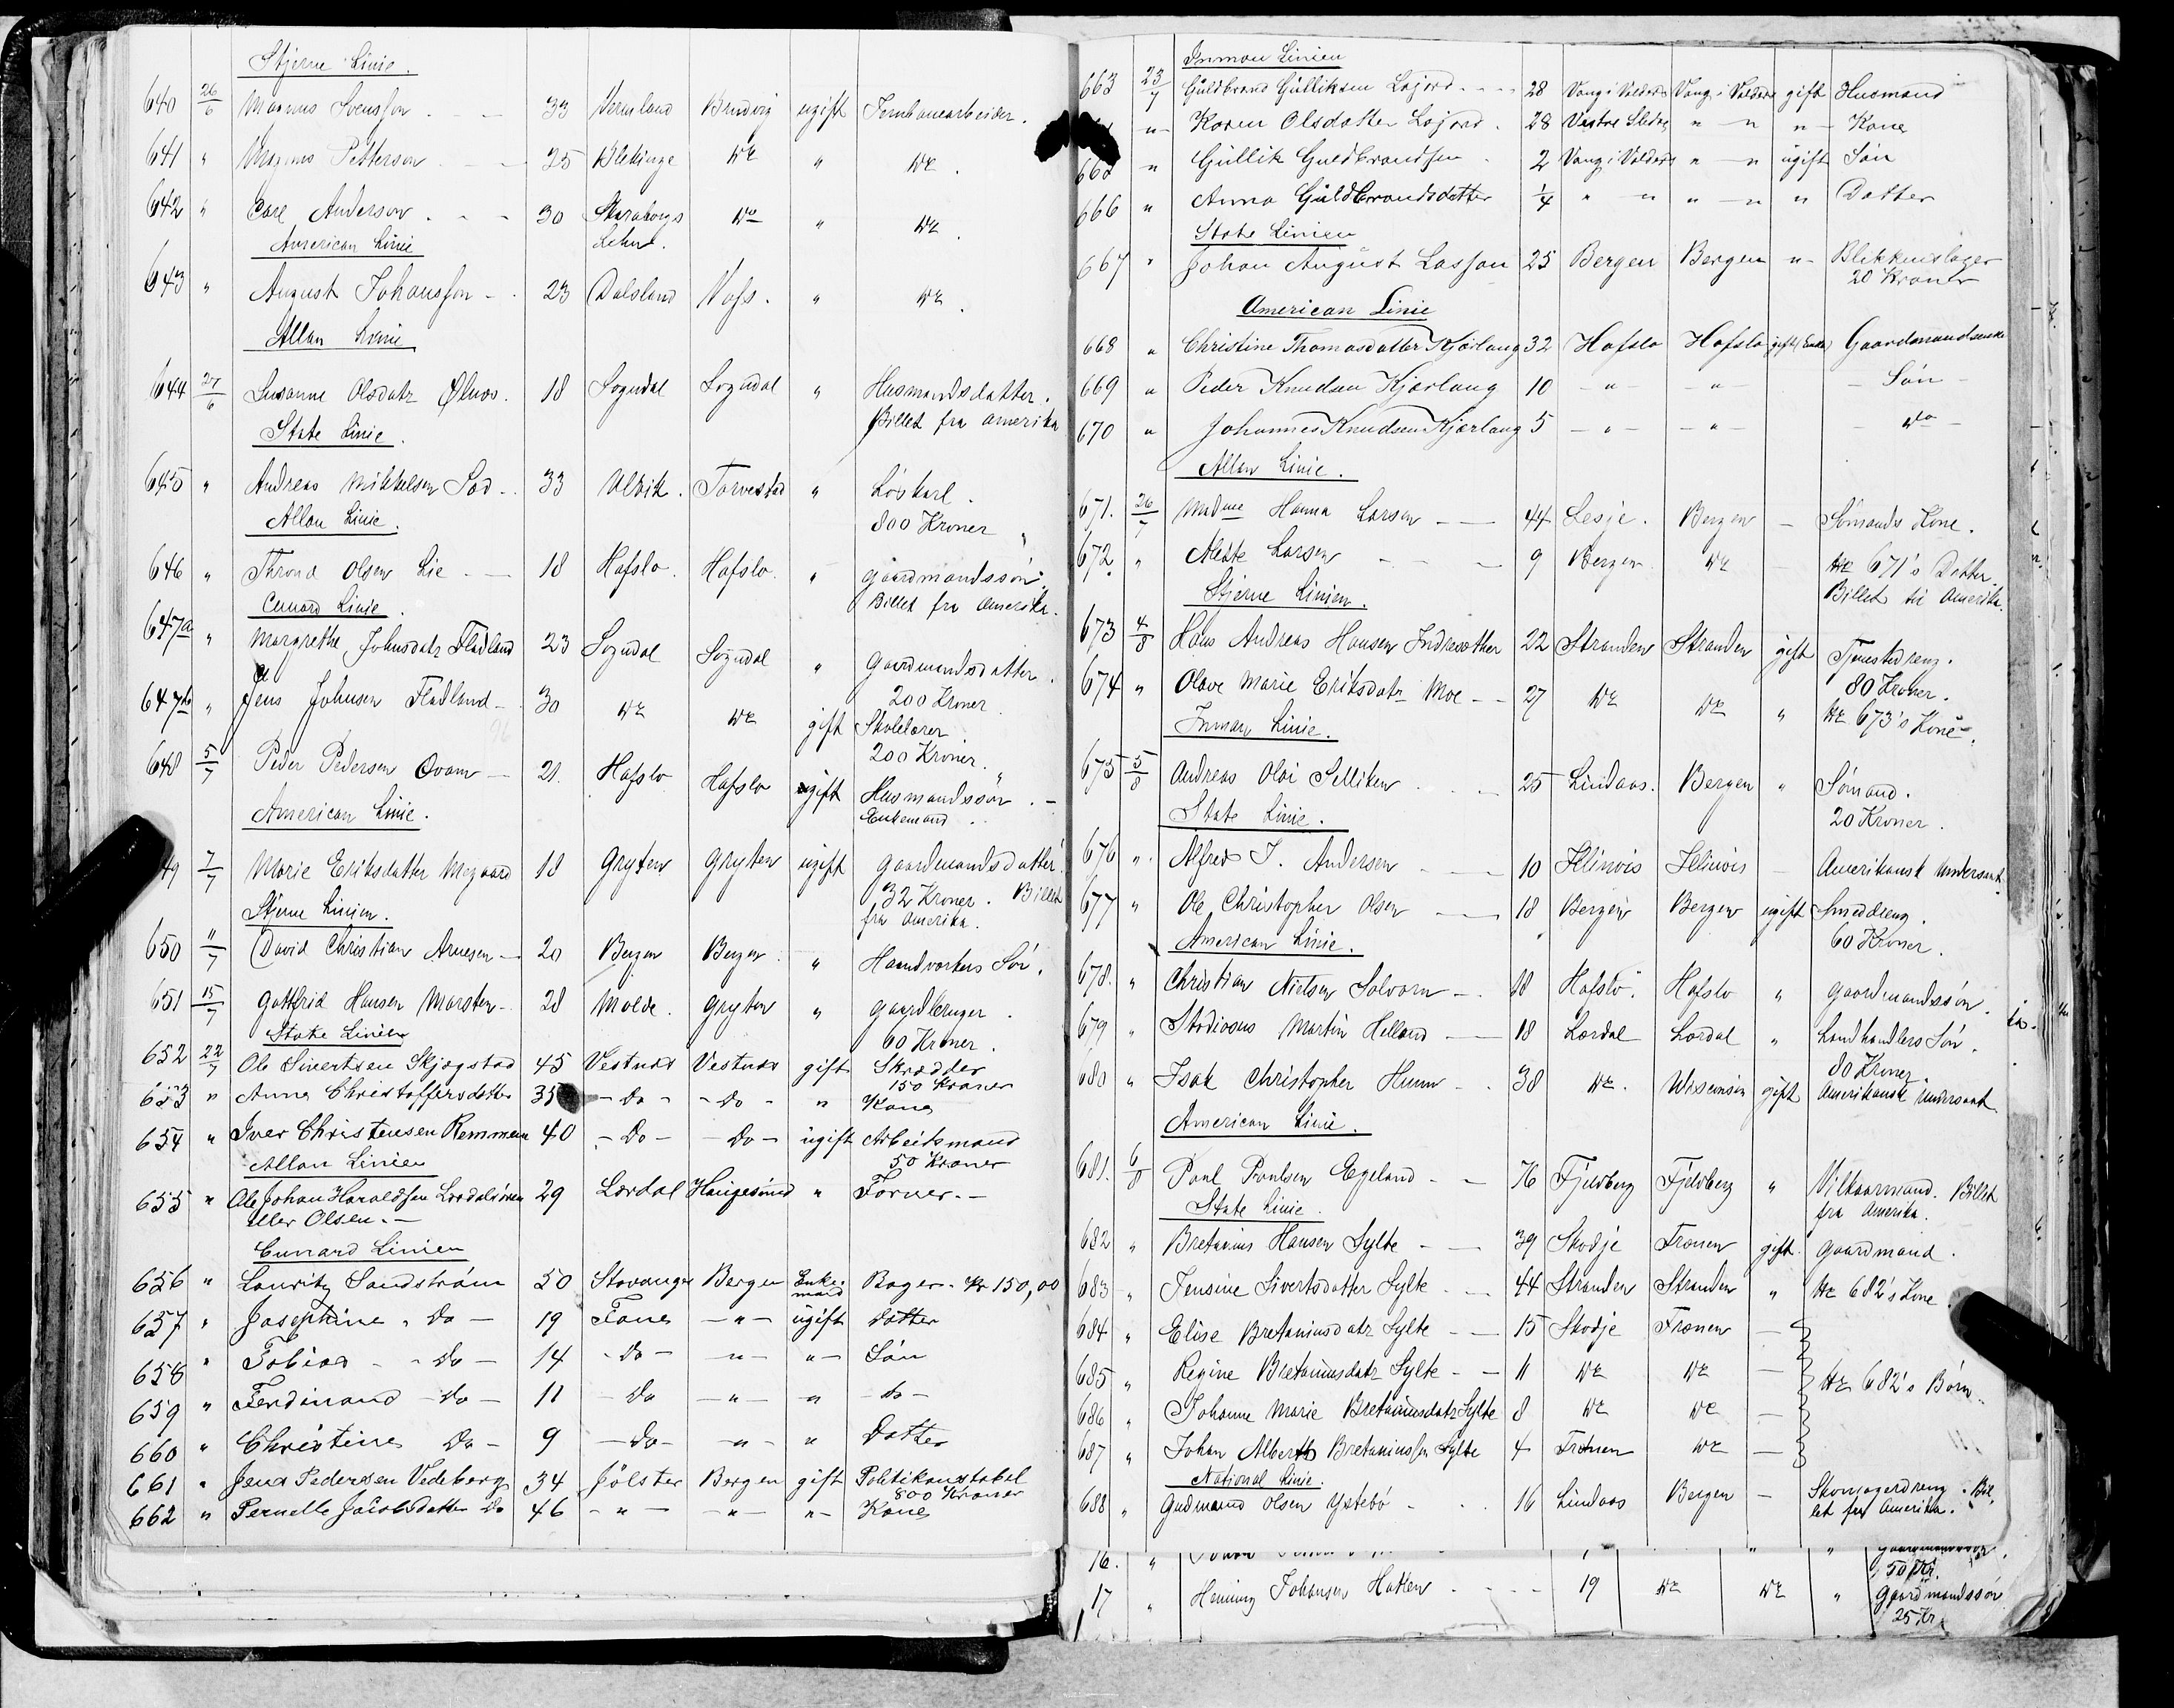 Stjerne Linie.
640 26/6 Magnus Svensson - - 33 Vermland Bruvig ugift Jernbanearbeider.
641 " Magnus Petterson - - 25 Blekinge do " do.
642 " Carl Anderson - - 30 Skaraborgs do " do.
Lehn.
American Linie
643 " August Johansson - 23 Dalsland Voss. " do.
Allan Linie
644 27/6 Susanne Olsdatr Ølnes. 18 Sogndal Sogndal " Husmandsdatter.
Billet fra Amerika
State Linie.
645 " Andreas Mikkelsen Sad - 33 Ulvik. Torvestad " Løskarl.
800 Kroner
Allan Linie.
646 " Thrond Olsen Lie - 18 Hafslo. Hafslo. " Gaardmandssøn.
Billet fra Amerika.
Cunard Linie.
647a " Margrethe Johnsdatr Fladland 23 Sogndal Sogndal " Gaardmandsdatter.
200 Kroner
647b " Jens Johnsen Fladland - 30 do do gift Skolelærer
200 Kroner.
648 5/7 Peder Pedersen Qvam - 21. Hafslo Hafslo ugift Husmandssøn. -
Enkemand
American Linie.
49 7/7 Marie Eriksdatter Megaard 18 Gryten Gryten ugift Gaardmandsdatter.
32 Kroner. Billet
fra Amerika.
Stjerne Linien.
650 11/7 David Christian Arnesen - 20 Bergen Bergen " Haandværkers Søn.
651 15/7 Gottfrid Hansen Marsten - 28 Molde. Gryten " Gaardbruger.
60 Kroner.
State Linien
652 22/7 Ole Sivertsen Skjegstad 45 Vestnæs Vestnæs gift Skrædder
150 Kroner
653 " Anna Christoffersdatter 35 - Do - - Do - " Kone
654 " Iver Christensen Remmem 40 - Do - - Do - ugift Arbeidsmand
50 Kroner
Allan Linien
655 " Ole Johan Haraldsen Lærdalsøren 29 Lærdal Haugesund " Farver. -
eller Olsen. -
Cunard Linien
656 " Lauritz Sandstrøm 50 Stavanger Bergen Enke- Bager - Kr 150,00
mand
657 " Josephine - Do - 19 Fane - " - ugift Datter
658 " Tobias - - Do - 14 - Do - - " - " - Søn
659 " Ferdinand - Do - 11 - Do - " - " - do -
660 " Christine Do - 9 - Do - - " - " Datter
661 " Jens Pedersen Vedeberg 34 Jölster Bergen gift Politikonstabel
800 Kroner
662 " Pernelle Jacobsdatter Do 46 - " - - " - " - Kone
Inman Linien
663 23/7 Guldbrand Gulliksen Lojord - - - - 28 Vang i Valders Vang i Valders gift Husmand
" - Karen Olsdatter Lojord. 28 Vestre Slidre " - " " - Kone
665 " Gullik Guldbrandsen 2 Vang i Valders " - " ugift Søn
666 " Anna Guldbrandsdatter 1/4 " - " " - " " Datter
State Linien
667 " Johan August Lassan 25 Bergen Bergen " - Blikkenslager
20 Kroner
American Linie
668 " Christine Thomasdatter Kjærlaug 32 Hafslo Hafslo gift (Enke) Gaardmandsenke
669 " Peder Knudsen Kjærlaug 10 - " - - " - - Søn -
670 " Johannes Knudsen Kjærlaug 5 - " - - " - - do -
Allan Linie.
671. 26/7 Madme Hanna Larsen - - 44 Lesje. Bergen - Sømands Kone.
672. " Alette Larsen - - - 9 Bergen do - No 671's Datter.
Billet til Amerika.
Stjerne Linien.
673 4/8 Hans Andreas Hansen Indresæther 22 Stranden Stranden gift Tjenestedreng.
80 Kroner.
674 " Olave Marie Eriksdatr Moe - - 27 do do " No 673's Kone.
Inman Linie.
675 5/8 Andreas Olai Selliken 25 Lindaas. Bergen " Sømand.
20 Kroner.
State Linie.
676 " Alfred J. Andersen - 10 Illinois Illinois - Amerikansk Undersaat.
677 " Ole Christopher Olsen - 18 Bergen Bergen ugift Smeddreng.
60 Kroner.
American Linie.
678. " Christian Nielsen Solvorn - 18 Hafslo. Hafslo " Gaardmandssøn.
679 " Studiosus Martin Helland - 18 Lærdal Lærdal " Landhandlers Søn.
80 Kroner.
680 " Isak Christopher Humn - 38 do. Wisconsin gift Amerikansk Undersaat.
American Linie.
681. 6/8 Paul Paulsen Egeland - - 76 Fjeldberg Fjeldberg " Vilkaarmand. Billet
fra Amerika.
State Linie.
682 " Bretanius Hansen Sylte - - 39 Skodje Frænen gift. Gaardmand.
683 " Jensine Sivertsdatter Sylte - 44 Stranden Stranden " No 682's Kone.
684 " Elise Bretaniusdatr Sylte - 15 Skodje Frænen -
685 " Regine Bretaniusdatr Sylte - - 11 do do - No 682's Børn.
686 " Johanne Marie Bretaniusdatr Sylte 8 do do -
687 " Johan Albert Bretaniussen Sylte 4 Frænen do -
National Linie.
688 " Gudmund Olsen Ystebø - 16 Lindaas Bergen - Skomagerdreng. Bil-
let fra Amerika.
16. "
50 Kr.
17 " Henning Johansen Hatlen - - - 19 do do " Gaardmandssøn
25 Kr